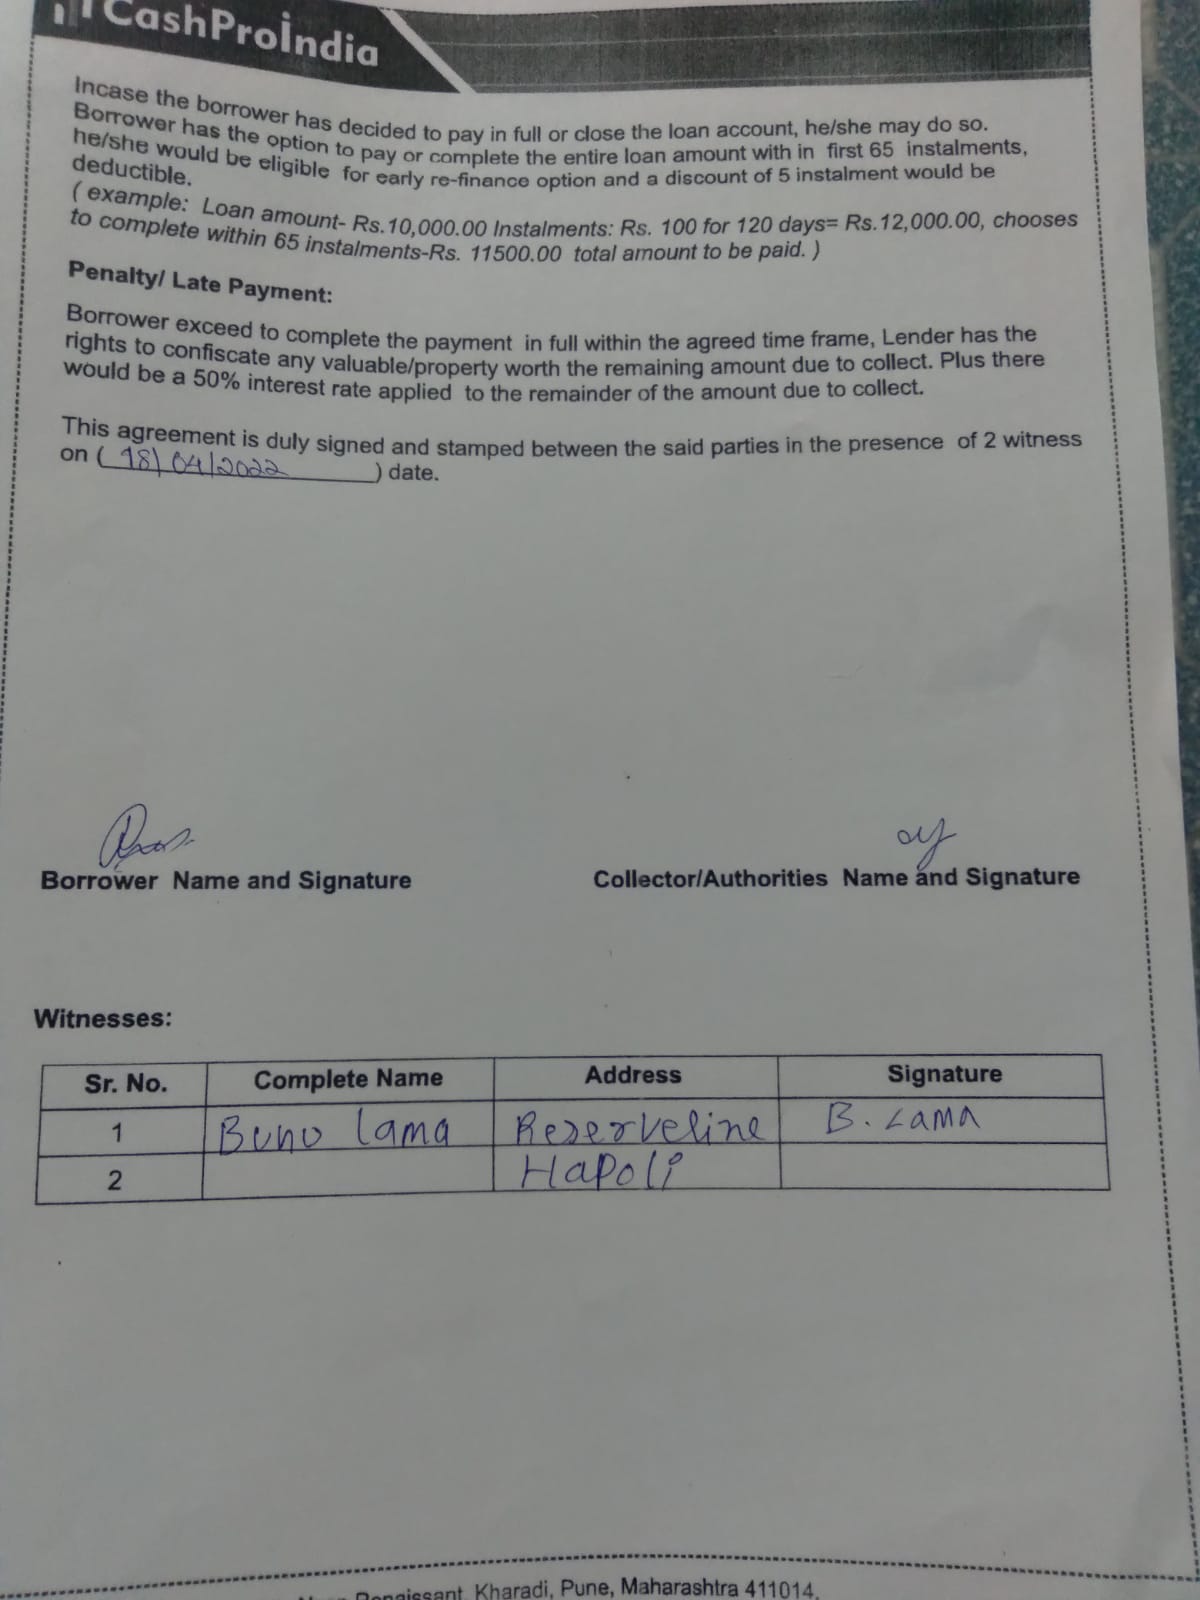 CashProIndia
Incase the borrower has decided to pay in full or close the loan account, he/she may do so.
Borrower has the option to pay or complete the entire loan amount with in first 65 instalments,
he/she would be eligible for early re-finance option and a discount of 5 instalment would be
deductible.
( example: Loan amount- Rs.10,000.00 Instalments: Rs. 100 for 120 days= Rs.12,000.00, chooses
to complete within 65 instalments-Rs. 11500.00 total amount to be paid. )
Penalty/ Late Payment:
Borrower exceed to complete the payment in full within the agreed time frame, Lender has the
rights to confiscate any valuable/property worth the remaining amount due to collect. Plus there
would be a 50% interest rate applied to the remainder of the amount due to collect.
This agreement is duly signed and stamped between the said parties in the presence of 2 witness
on ( 18/04/2022 ) date.
Borrower Name and Signature Collector/Authorities Name and Signature
Witnesses:
Sr. No. Complete Name Address Signature
1 Buno lama Reserveline B. Lama
2 Hapoli
Kharadi, Pune, Maharashtra 411014.